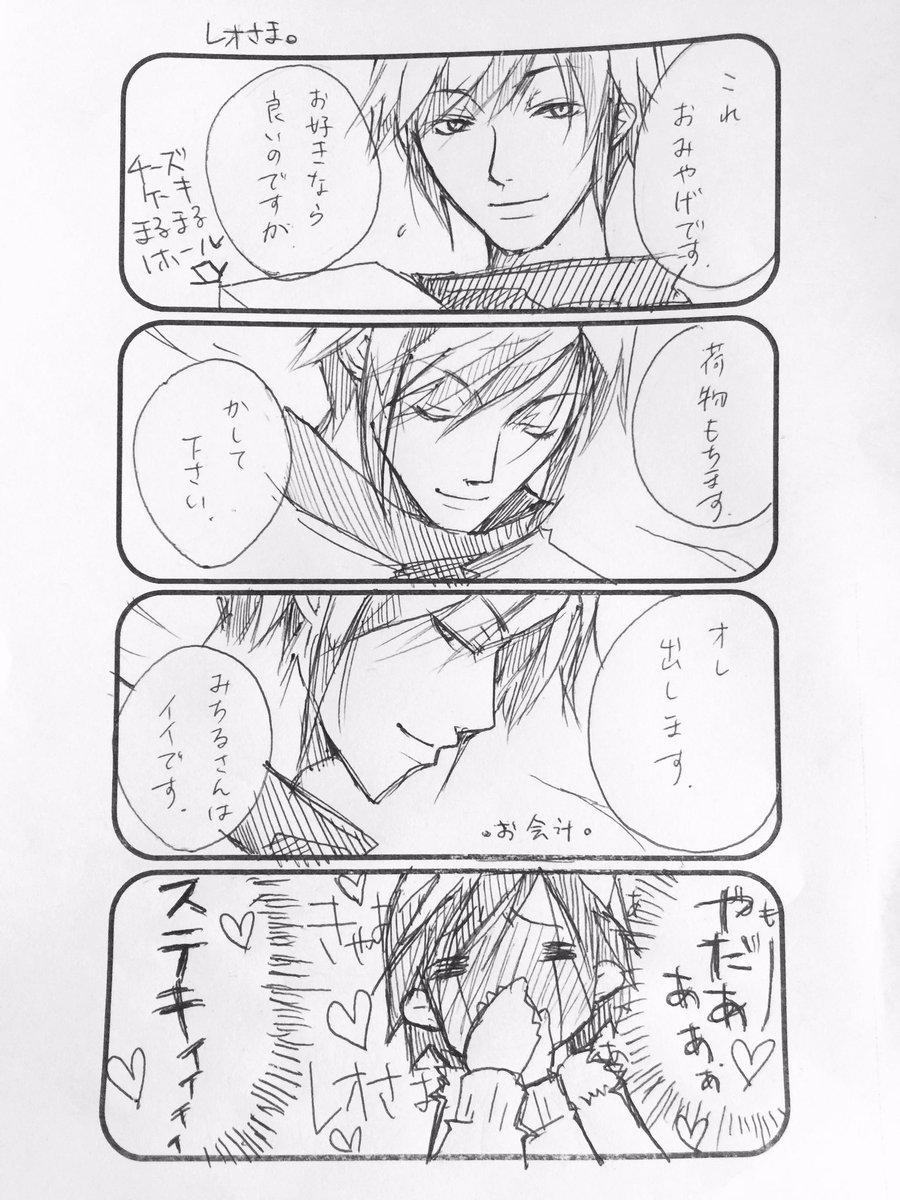 レオさま。
これ
おみやげです.
お好きなら
良いのですが
チーズ
ケーキ
まるまる
ホール
荷物もちます.
かして
下さい.
オレ
出します.
みちるさんは
イイです.
。お会計。
やもー
だぁ
あぁぁ
きゃあ
レオさま
ステキィィィィ